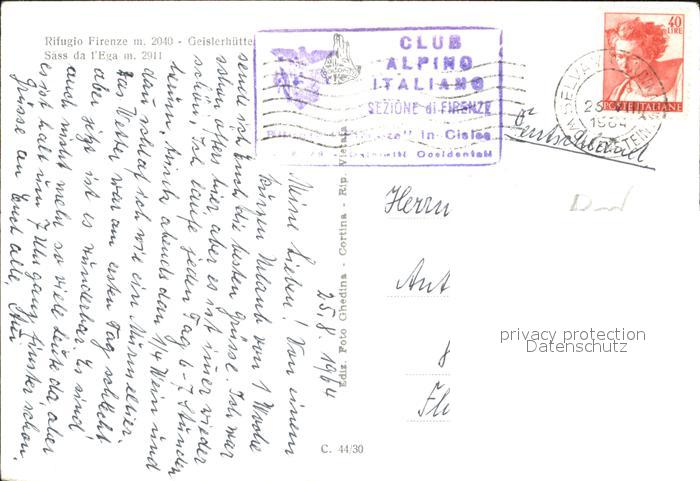 Rifugio Firenze m. 2040 - Geislerhütte
Sass da l'Ega m. 2911
CLUB
ALPINO
ITALIANO
SEZIONE di FIRENZE
in Cisles
Occidentali
40
LIRE
POSTE ITALIANE
Deutschland
25.8.1964
Meine Lieben! Von einem
kurzen Urlaub von 1 Woche
sende ich Euch die besten Grüsse. Ich war
schon öfters hier, aber es ist immer wieder
schön. Ich laufe jeden Tag 6-7 Stunden
herum, trinke abends dann 1/4 Wein und
dann schlaf ich wie ein Murmeltier.
Das Wetter war am ersten Tag schlecht
aber jetzt ist es wunderbar. Es sind
auch nicht mehr so viele Leute da, aber
es ist halt um 7 Uhr ganz finster schon.
Grüsse an Euch alle,
Ediz. Foto Ghedina - Cortina - Rip. Vietata
C. 44/30
Herrn
Ant
Fl
privacy protection
Datenschutz